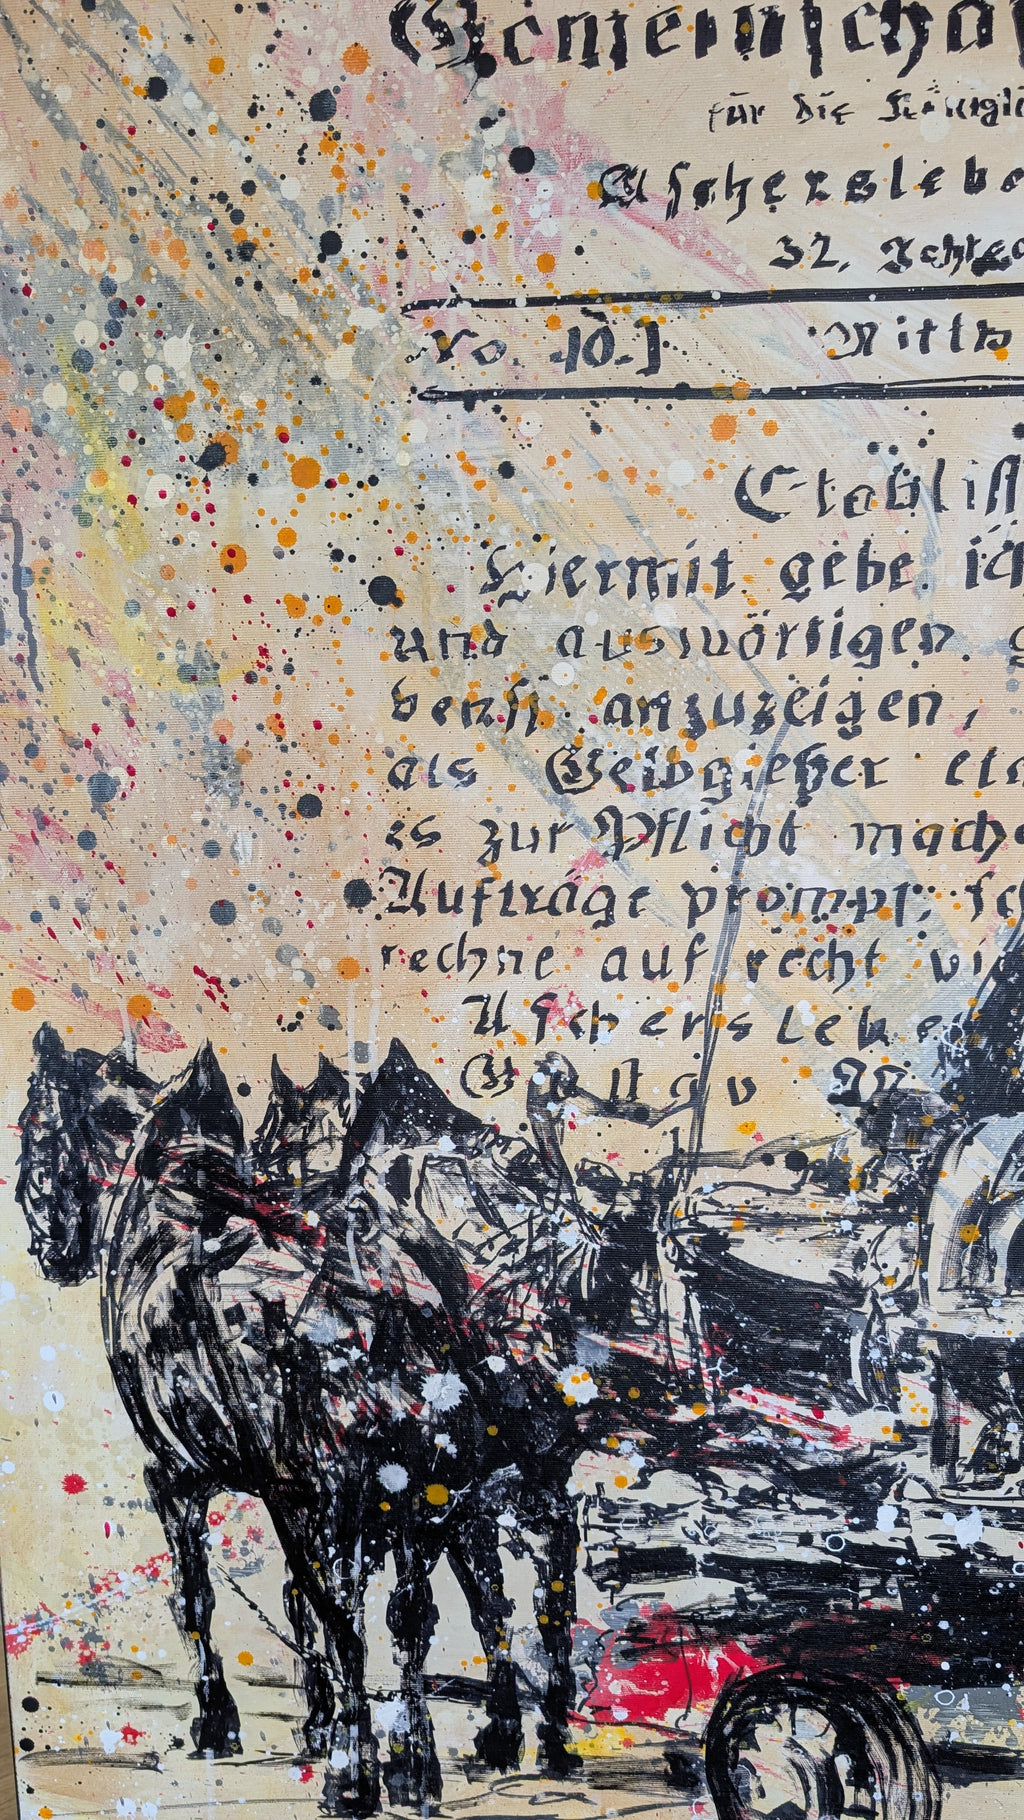 Gemeinscha
für die Königli
Ascherslebe
32. Jahrga
No. 10.]
Mittw
Etabliss
Hiermit gebe ich
und auswörtigen g
benst anzuzeigen,
als Gelbgießer eta
es zur Pflicht mache
Aufträge prompt, sch
rechne auf recht vi
Aschersleben
Gustav